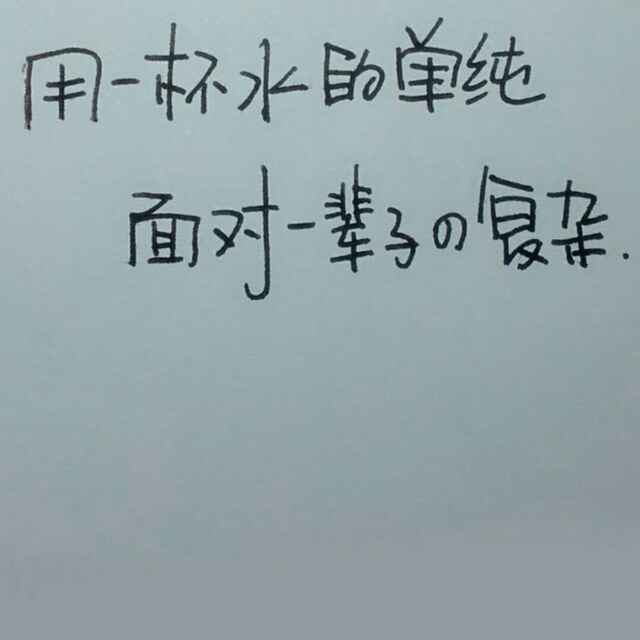 用一杯水的单纯
面对一辈子の复杂.